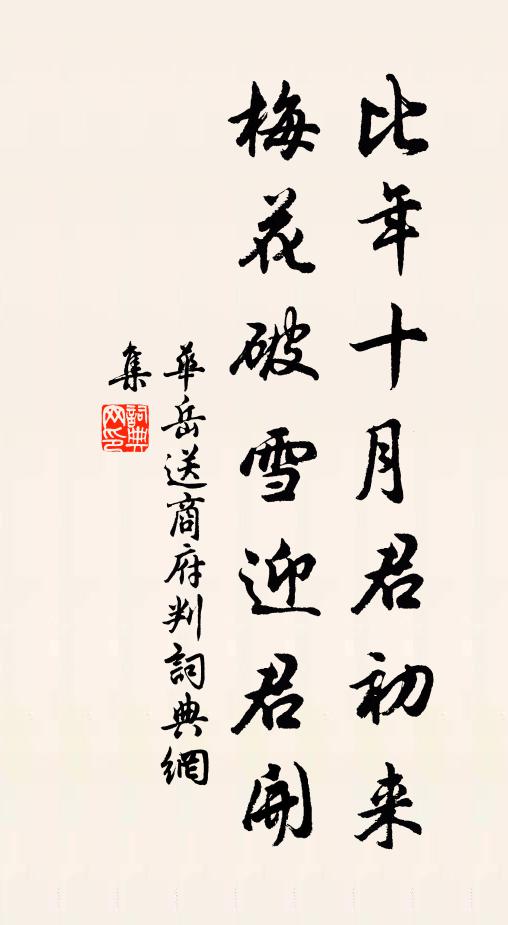 比年十月君初来
梅花破雪迎君開
華岳送商府判詞典網
集
詞典
网印